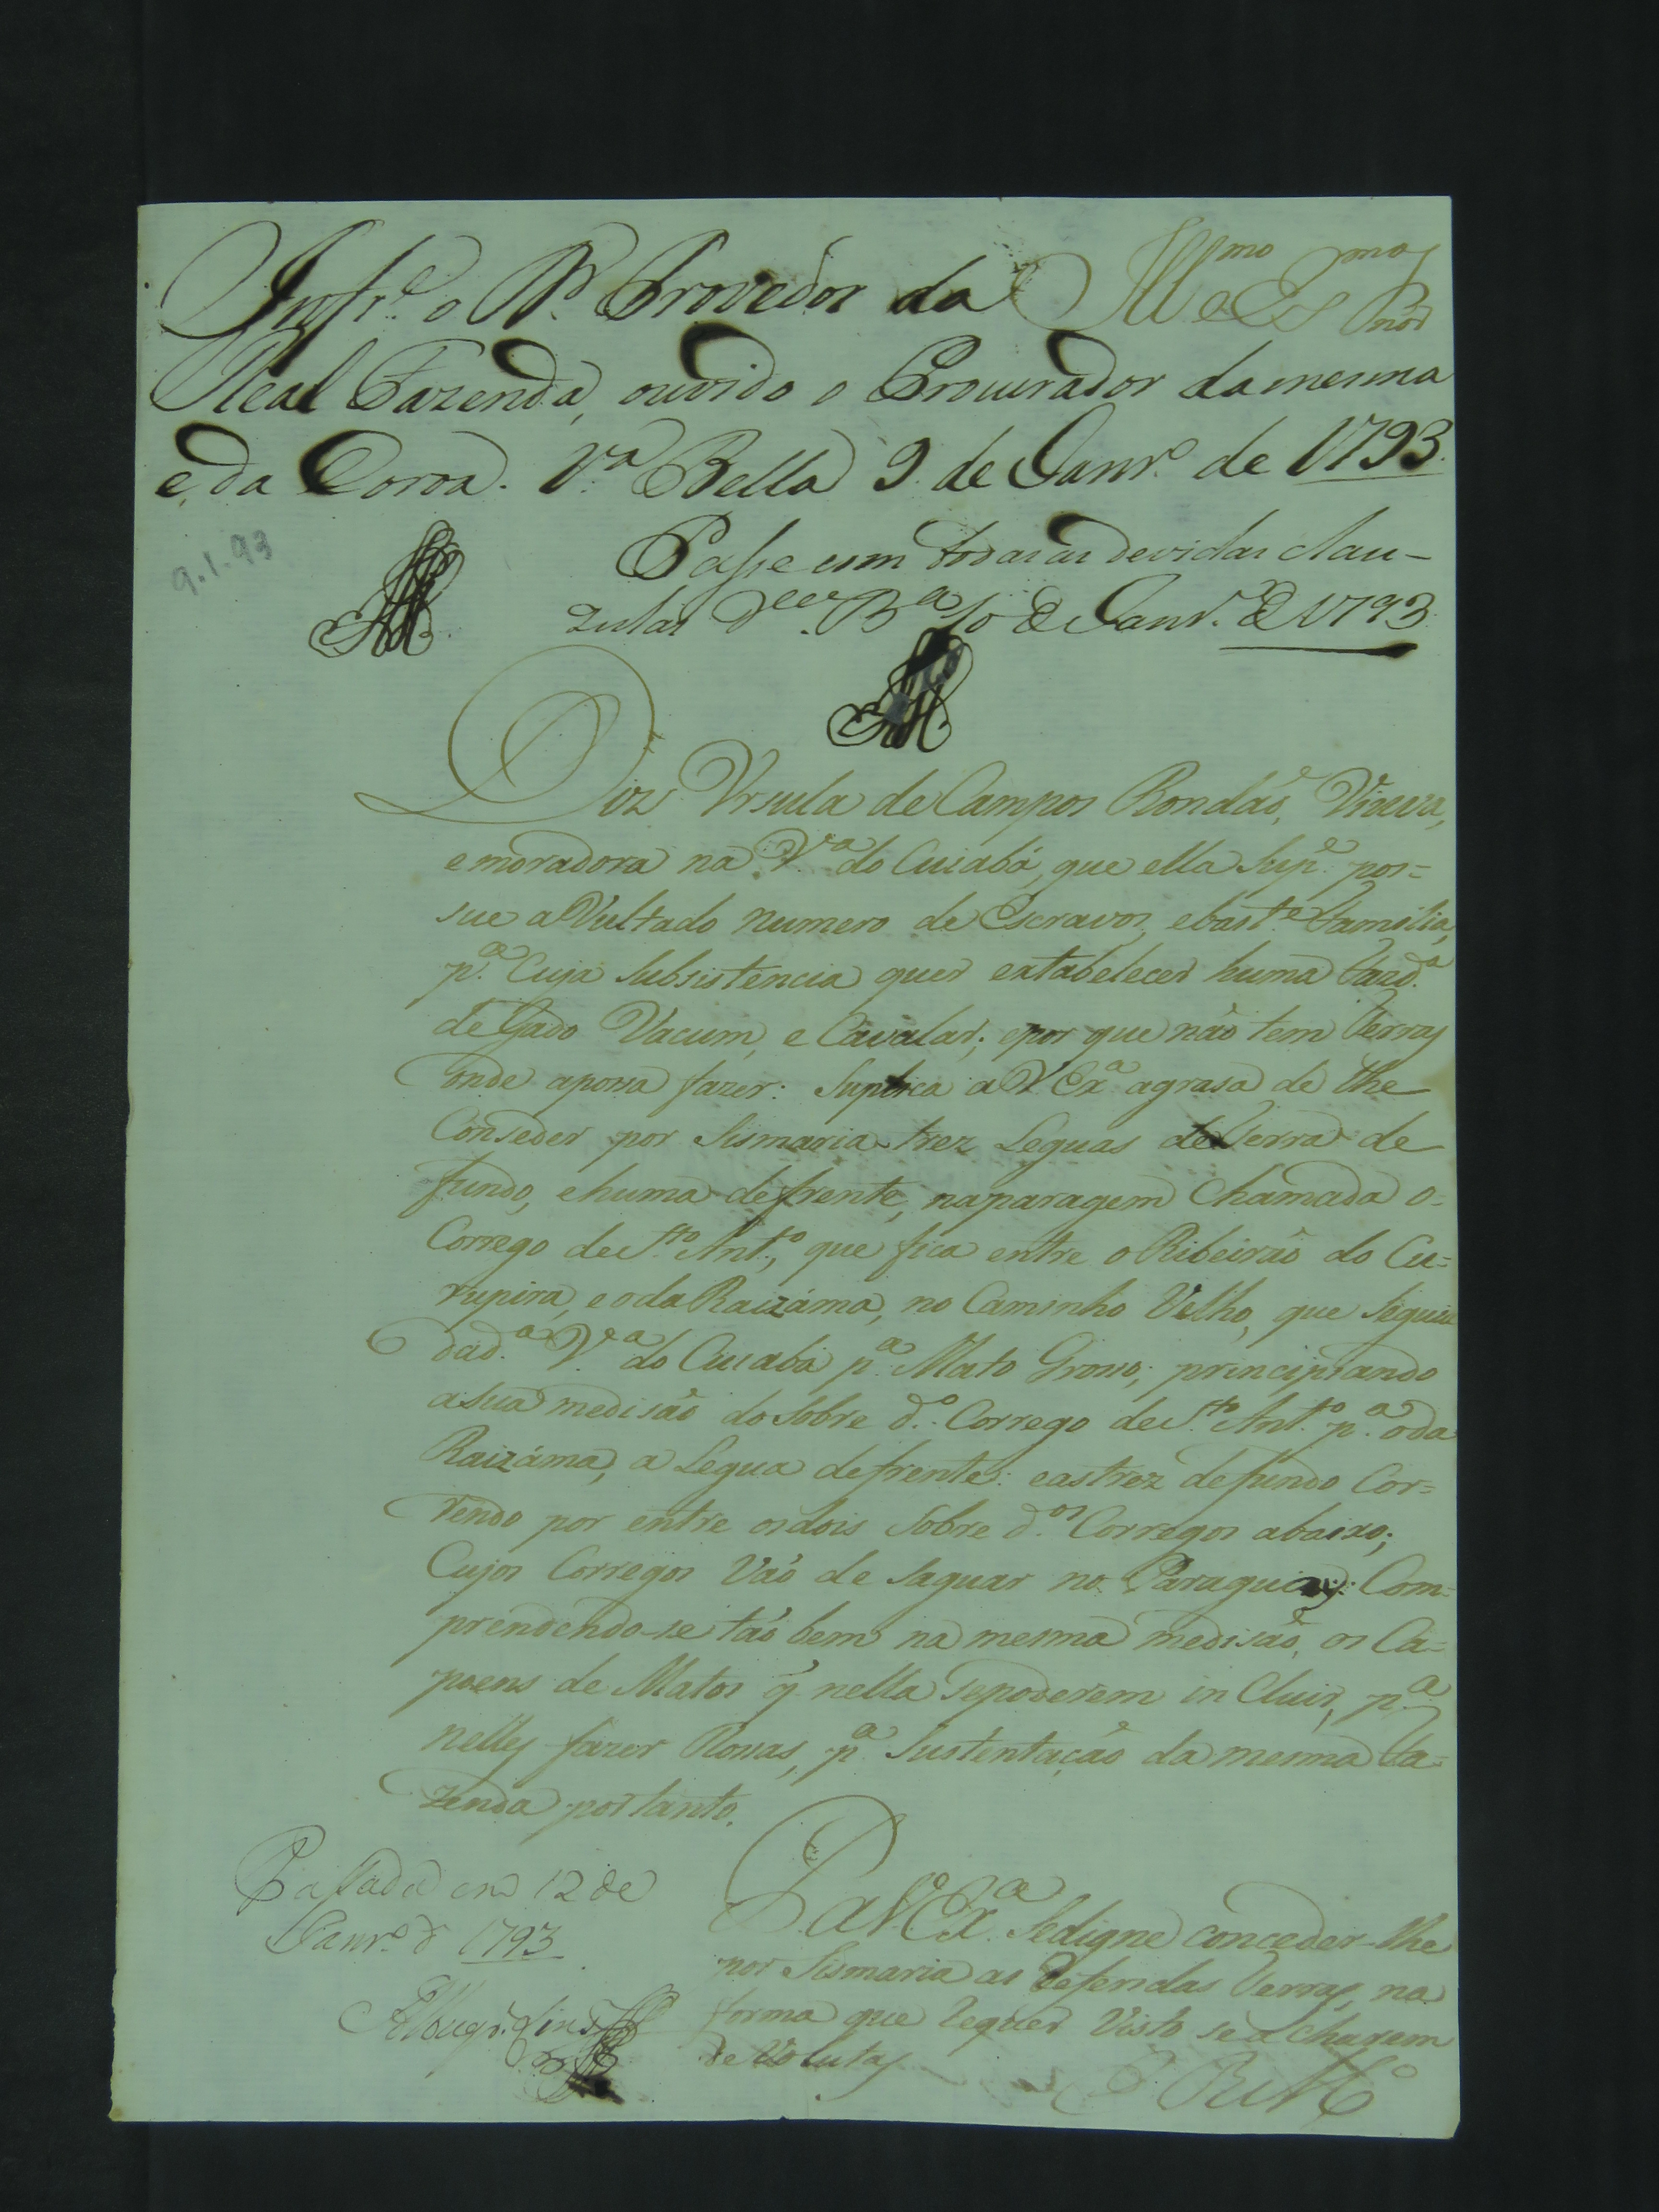 Infr.e o D.r Provedor da
Ill.mo e Ex.mo Snor
Real Fazenda, ouvido o Procurador da mesma
e da Coroa. V.a Bella 9 de Janr.o de 1793.
9.1.93
Passe com todas as devidas clau-
zulas V.a B.a 10 de Janr.o de 1793
Diz Vrsula de Campos Rondão, Viuva,
e moradora na V.a do Cuiabá, que ella Sup.e pos=
sue a Vultado numero de Escravos, e bast.e familia,
p.a Cuja Subsistencia quer extabelecer huma fazd.a
de Gado Vacum, e Cavalar; e por que não tem terras
onde a possa fazer: Suplica a V. Ex.a a grasa de lhe
Conseder por Sismaria trez Leguas de terra de
fundo, e huma de frente, na paragem Chamada o-
Corrego de S.to Ant.o, que fica entre o Ribeirão do Cu=
rupira, e o da Raizáma, no Caminho Velho, que seguia
da d.a V.a do Cuiaba p.a Mato Grosso; principiando
a sua medisão do Sobre d.o Corrego de S.to Ant.o p.a o da
Raizáma, a Legua de frente: e as trez de fundo Cor=
rendo por entre os dois Sobre d.os Corregos abaixo;
Cujos Corregos Vão de saguar no Paraguay: Com=
prendendo-se táo bem na mesma medisão, os Ca=
poens de Matos q̃ nella se poderem in Cluir, p.a
nelles fazer Rosas, p.a Sustentação da mesma fa=
zenda portanto.
Passada em 12 de
Janr.o d 1793
P. a V. Ex.a Se digne conceder-lhe
por Sismaria as Referidas terras, na
forma que requer Visto se a charem
de Volutas
E. R. M.ce